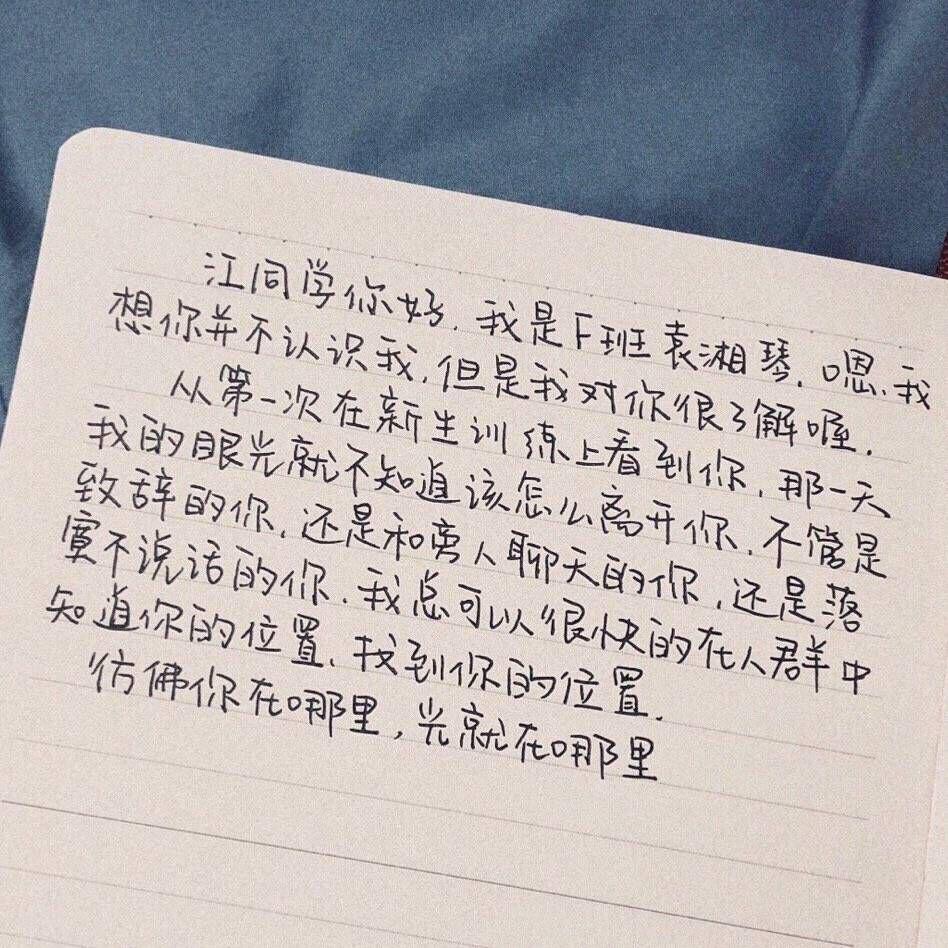 江同学你好.我是F班袁湘琴.嗯.我
想你并不认识我.但是我对你很了解喔.
从第一次在新生训练上看到你.那一天
我的眼光就不知道该怎么离开你.不管是
致辞的你.还是和旁人聊天的你.还是落
寞不说话的你.我总可以很快的在人群中
知道你的位置.找到你的位置.
仿佛你在哪里,光就在哪里